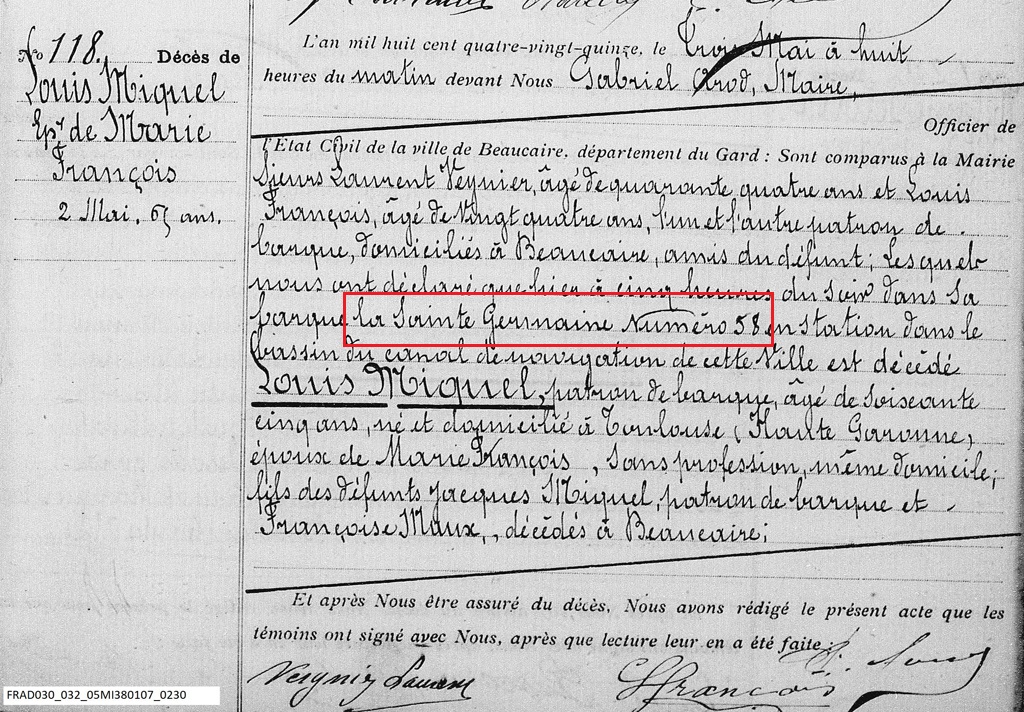 No 118. Décès de
Louis Miquel
Epx de Marie
François
2 Mai. 65 ans.
L'an mil huit cent quatre-vingt-quinze, le Trois Mai à huit
heures du matin devant Nous Gabriel Arod, Maire,
Officier de
l'Etat Civil de la ville de Beaucaire, département du Gard : Sont comparus à la Mairie
Sieurs Laurent Veynier, âgé de quarante quatre ans et Louis
François, âgé de Vingt quatre ans, l'un et l'autre patron de
barque, domiciliés à Beaucaire, amis du défunt; Lesquels
nous ont déclaré que hier à cinq heures du soir dans sa
barque la Sainte Germaine Numéro 58 en station dans le
bassin du canal de navigation de cette Ville est décédé
Louis Miquel, patron de barque, âgé de soixante
cinq ans, né et domicilié à Toulouse (Haute Garonne,
époux de Marie François, sans profession, même domicile;
fils des défunts Jacques Miquel, patron de barque et
Françoise Maux, décédés à Beaucaire;
Et après Nous être assuré du décès, Nous avons rédigé le présent acte que les
témoins ont signé avec Nous, après que lecture leur en a été faite.
Veignier Laurent
François
FRAD030_032_05MI380107_0230